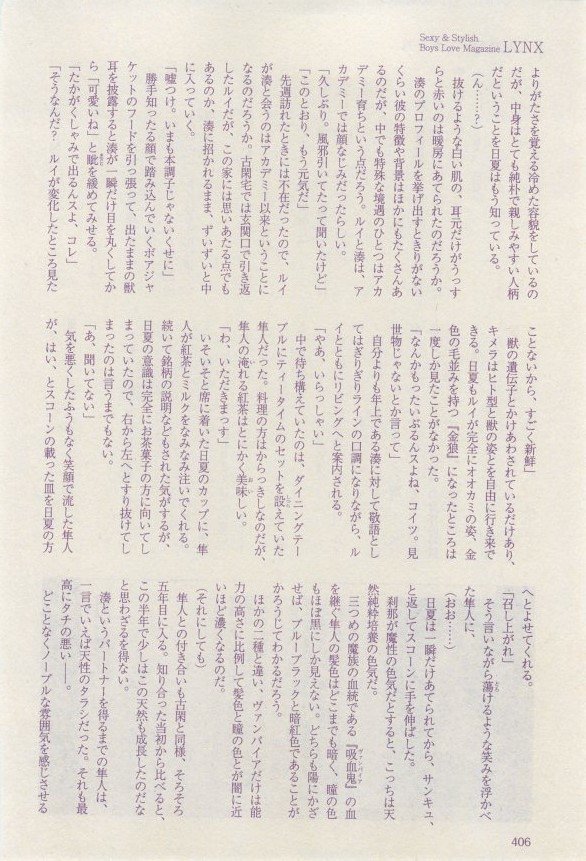 Sexy & Stylish
Boys Love Magazine LYNX
よりがたさを覚える冷めた容貌をしているの
だが、中身はとても純朴で親しみやすい人柄
だということを日夏はもう知っている。
（ん……？）
抜けるような白い肌の、耳元だけがうっす
らと赤いのは暖房にあてられたのだろうか。
湊のプロフィールを挙げ出すときりがない
くらい彼の特徴や背景はほかにもたくさんあ
るのだが、中でも特殊な境遇のひとつはアカ
デミー育ちという点だろう。ルイと湊は、ア
カデミーでは顔なじみだったらしい。
「久しぶり。風邪引いてたって聞いたけど」
「このとおり、もう元気だ」
先週訪れたときには不在だったので、ルイ
が湊と会うのはアカデミー以来ということに
なるのだろうか。古閑宅では玄関口で引き返
したルイだが、この家には思いあたる点でも
あるのか、湊に招かれるまま、ずいずいと中
に入っていく。
「嘘つけ。いまも本調子じゃないくせに」
勝手知ったる顔で踏み込んでいくボアジャ
ケットのフードを引っ張って、出たままの獣
耳を披露すると湊が一瞬だけ目を丸くしてか
ら「可愛いね」と眦を緩めてみせる。
「たかがくしゃみで出るんスよ、コレ」
「そうなんだ？　ルイが変化したところ見た
ことないから、すごく新鮮」
獣の遺伝子とかけあわされているだけあり、
キメラはヒト型と獣の姿とを自由に行き来で
きる。日夏もルイが完全にオオカミの姿、金
色の毛並みを持つ『金狼』になったところは
一度しか見たことがなかった。
「なんかもったいぶるんスよね、コイツ。見
世物じゃないとか言って」
自分よりも年上である湊に対して敬語とし
てはぎりぎりラインの口調になりながら、ル
イとともにリビングへと案内される。
「やあ、いらっしゃい」
中で待ち構えていたのは、ダイニングテー
ブルにティータイムのセットを設えていた
隼人だった。料理の方はからっきしなのだが、
隼人の淹れる紅茶はとにかく美味しい。
「わ、いただきまっす」
いそいそと席に着いた日夏のカップに、隼
人が紅茶とミルクをなみなみ注いでくれる。
続いて銘柄の説明などもされた気がするが、
日夏の意識は完全にお茶菓子の方に向いてし
まっていたので、右から左へとすり抜けてし
まったのは言うまでもない。
「あ、聞いてない」
気を悪くしたふうもなく笑顔で流した隼人
が、はい、とスコーンの載った皿を日夏の方
へとよせてくれる。
「召し上がれ」
そう言いながら蕩けるような笑みを浮かべ
た隼人に、
（おお……）
日夏は一瞬だけあてられてから、サンキュ、
と返してスコーンに手を伸ばした。
刹那が魔性の色気だとすると、こっちは天
然純粋培養の色気だ。
三つめの魔族の血統である『吸血鬼』の血
を継ぐ隼人の髪色はどこまでも暗く、瞳の色
もほぼ黒にしか見えない。どちらも陽にかざ
せば、ブルーブラックと暗紅色であることが
かろうじてわかるだろう。
ほかの二種と違い、ヴァンパイアだけは能
力の高さに比例して髪色と瞳の色とが闇に近
いほど濃くなるのだ。
（それにしても）
隼人との付き合いも古閑と同様、そろそろ
五年目に入る。知り合った当初から比べると、
この半年で少しはこの天然も成長したのだな
と思わざるを得ない。
湊というパートナーを得るまでの隼人は、
一言でいえば天性のタラシだった。それも最
高にタチの悪い――。
どことなくノーブルな雰囲気を感じさせる
406